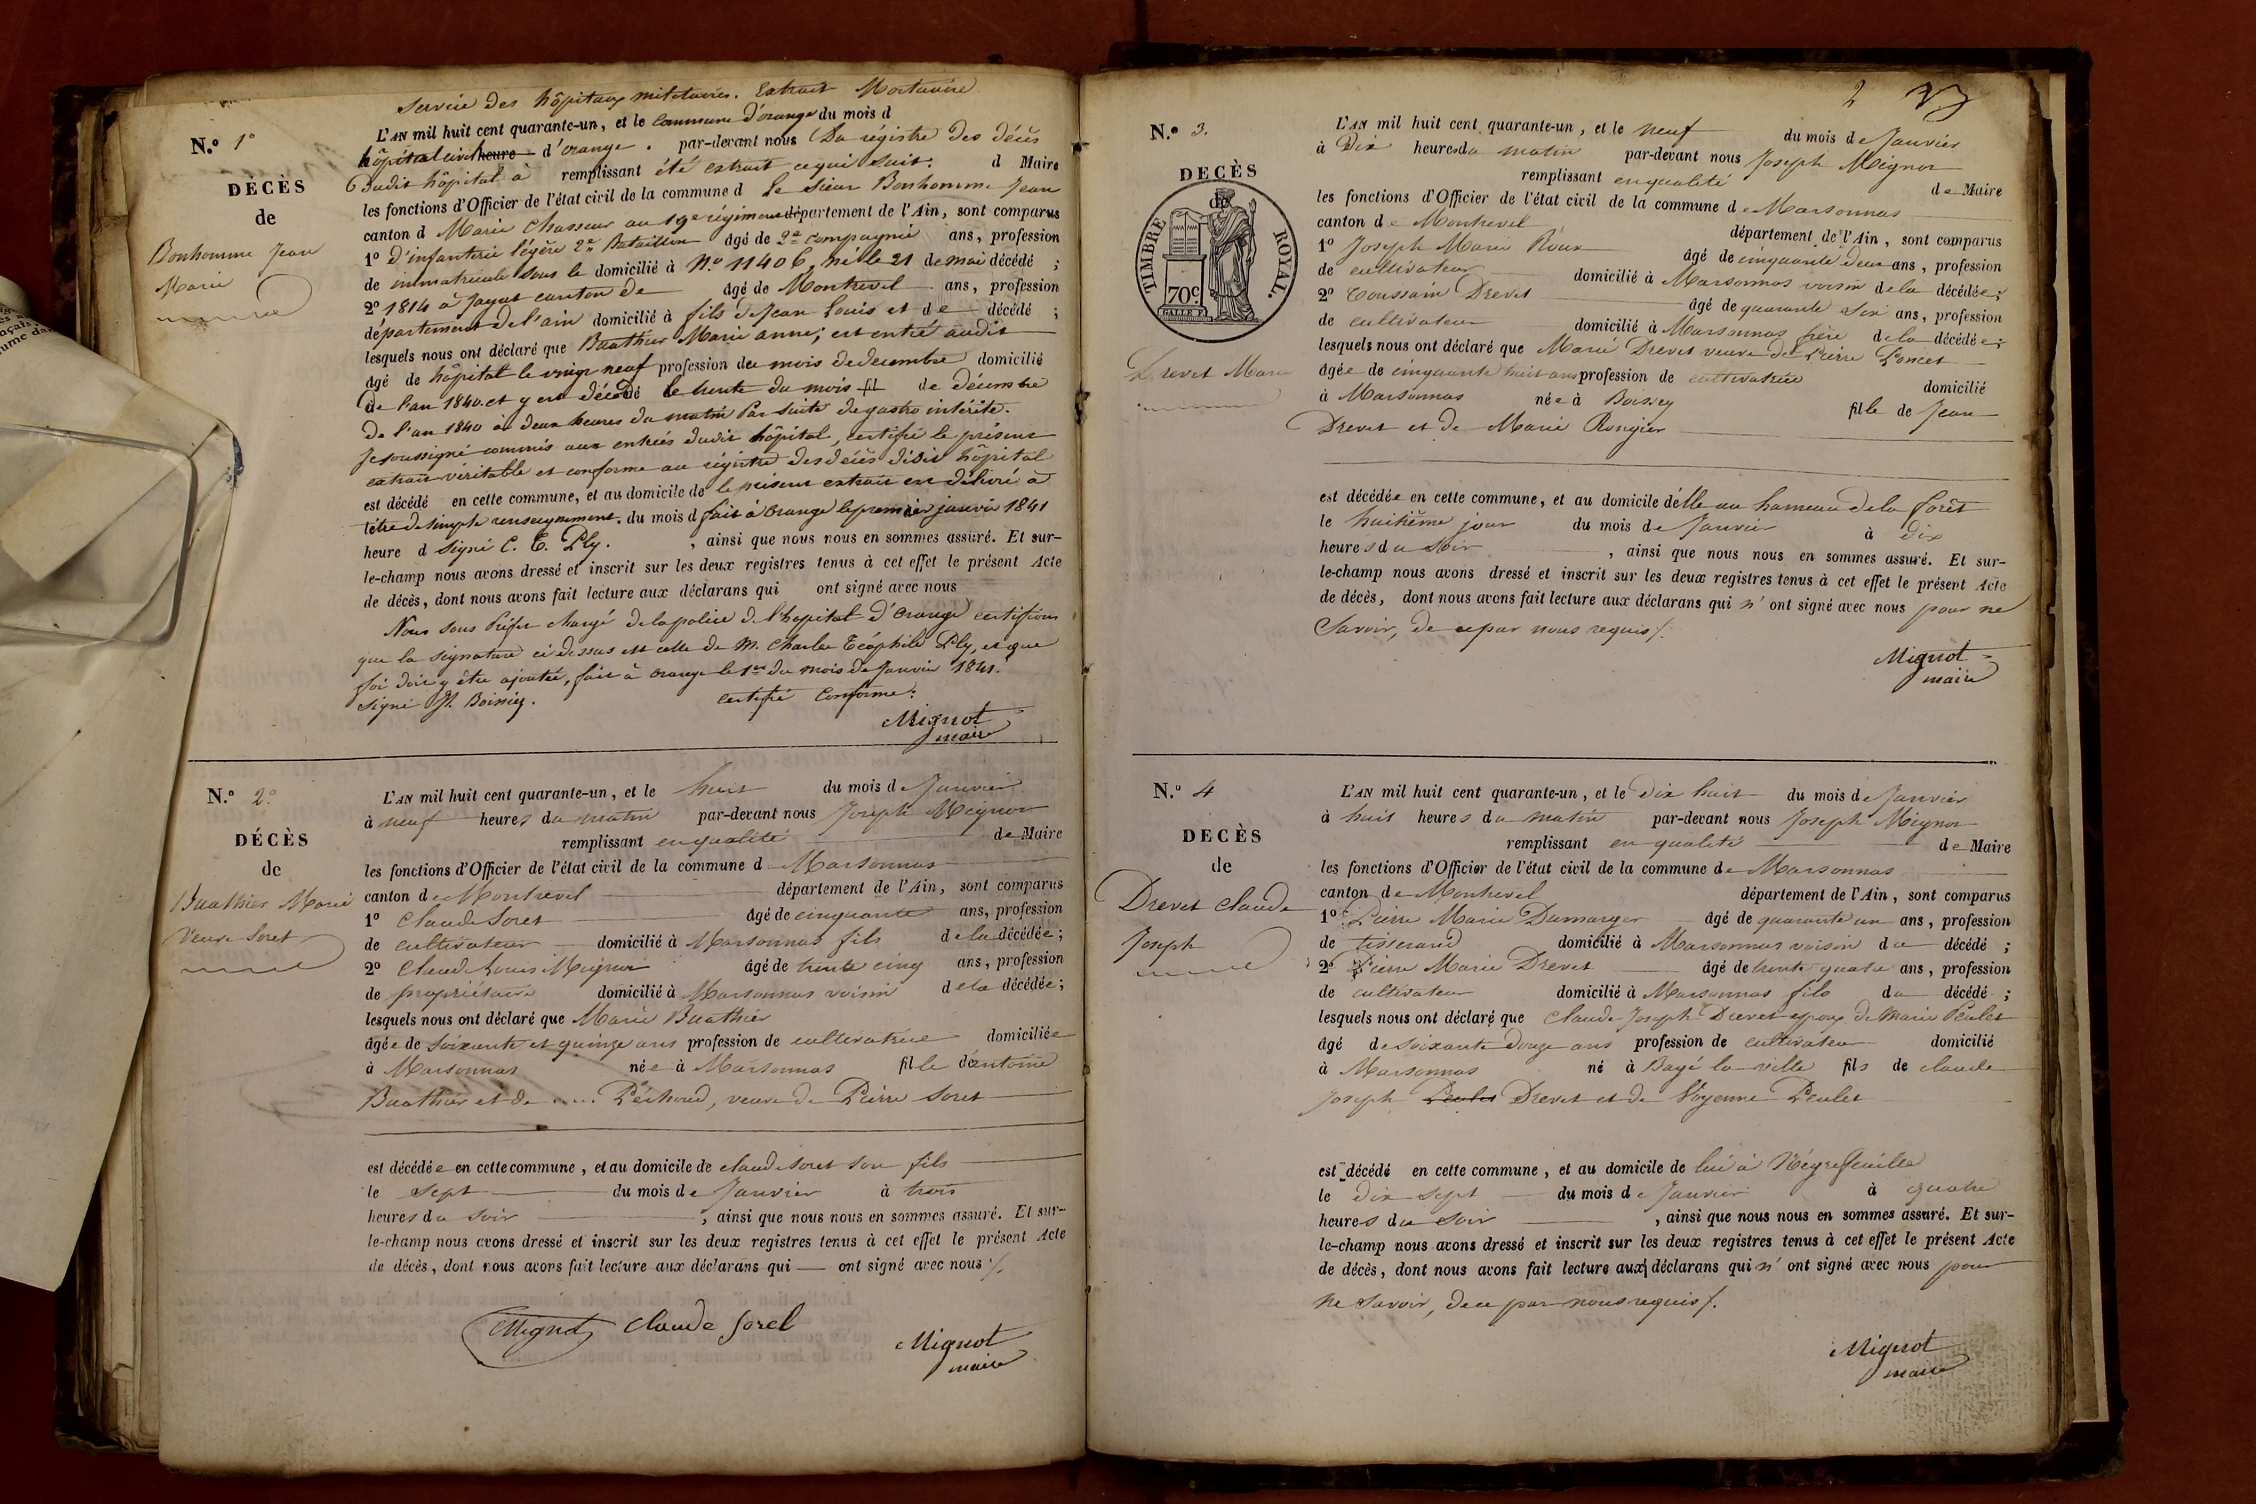 Service des hôpitaux militaires. Extrait Mortuaire
N.° 1°
L'AN mil huit cent quarante-un, et le commune d'orange du mois d
hôpital civil heure d'orange. par-devant nous Du régistre des décès
dudit hôpital à remplissant été extrait ce qui suit. d Maire
DÉCÈS
de
Bonhomme Jean
Marie
les fonctions d'Officier de l'état civil de la commune d le sieur Bonhomme Jean
canton d Marie chasseur au 19e régiment département de l'Ain, sont comparus
1° d'infanterie légère 2e Bataillon âgé de 2e compagnie ans, profession
de immatriculé sous le domicilié à N.° 11406, né le 21 de mai décédé ;
2° 1814 à Jayat canton de âgé de Montrevel ans, profession
département de l'ain domicilié à fils de Jean Louis et de décédé ;
lesquels nous ont déclaré que Buathier Marie anne; est entré audit
âgé de hôpital le vingt neuf profession du mois de decembre domicilié
de l'an 1840 et y est décédé le trente du mois fil de décembre
de l'an 1840 à deux heures du matin Par suite de gastro intérite.
Je soussigné commis aux entrées dudit hôpital, certifie le présent
extrait véritable et conforme au régistre des décès dudit hôpital
est décédé en cette commune, et au domicile de le présent extrait est délivré à
titre de simple renseignement. du mois d fait à Orange le premier janvier 1841
heure d signé C. T. Ply. , ainsi que nous nous en sommes assuré. Et sur-
le-champ nous avons dressé et inscrit sur les deux registres tenus à cet effet le présent Acte
de décès, dont nous avons fait lecture aux déclarans qui ont signé avec nous
Nous sous Préfet chargé de la police de l'hopital d'Orange certifions
que la signature ci dessus est celle de M. Charles Téophile Ply, et que
foi doit y être ajoutée, fait à Orange le 1er du mois de Janvier 1841.
signé
certifié Conforme:
Mignot
maire
N.° 2°
L'AN mil huit cent quarante-un, et le huit du mois de Janvier
à neuf heures du matin par-devant nous Joseph Mignot
remplissant en qualité de Maire
DÉCÈS
de
Buathier Marie
Veuve Soret
les fonctions d'Officier de l'état civil de la commune d Marsonnas
canton de Montrevel département de l'Ain, sont comparus
1° Claude Soret âgé de cinquante ans, profession
de cultivateur domicilié à Marsonnas fils de la décédée;
2° Claude Louis Mignot âgé de trente cinq ans, profession
de propriétaire domicilié à Marsonnas voisin de la décédée;
lesquels nous ont déclaré que Marie Buathier
âgée de soixante et quinze ans profession de cultivatrice domiciliée
à Marsonnas née à Marsonnas fille d'antoine
Buathier et de ..... Péchoud, veuve de Pierre Soret
est décédée en cette commune, et au domicile de claude soret son fils
le sept du mois de Janvier à trois
heures du soir , ainsi que nous nous en sommes assuré. Et sur-
le-champ nous avons dressé et inscrit sur les deux registres tenus à cet effet le présent Acte
de décès, dont nous avons fait lecture aux déclarans qui ont signé avec nous
Mignot Claude Sorel
Mignot
maire
2
N.° 3.
L'AN mil huit cent quarante-un, et le neuf du mois de Janvier
à Dix heures du matin par-devant nous Joseph Mignot
remplissant en qualité de Maire
DECÈS
de
TIMBRE ROYAL.
70c
Drevet Marie
les fonctions d'Officier de l'état civil de la commune de Marsonnas
canton de Montrevel département de l'Ain, sont comparus
1° Joseph Marie Roux âgé de cinquante deux ans, profession
de cultivateur domicilié à Marsonnas voisin de la décédée;
2° Toussain Drevet âgé de quarante six ans, profession
de cultivateur domicilié à Marsonnas frère de la décédée;
lesquels nous ont déclaré que Marie Drevet veuve de Pierre Poncet
âgée de cinquante huit ans profession de cultivatrice domicilié
à Marsonnas née à Boissey fille de Jean
Drevet et de Marie Rongier
est décédée en cette commune, et au domicile d'elle au hameau de la forêt
le huitième jour du mois de Janvier à dix
heures du soir , ainsi que nous nous en sommes assuré. Et sur-
le-champ nous avons dressé et inscrit sur les deux registres tenus à cet effet le présent Acte
de décès, dont nous avons fait lecture aux déclarans qui n'ont signé avec nous pour ne
Savoir, de ce par nous requis.
Mignot
maire
N.° 4
L'AN mil huit cent quarante-un, et le Dix huit du mois de Janvier
à huit heures du matin par-devant nous Joseph Mignot
remplissant en qualité de Maire
DECÈS
de
Drevet Claude
Joseph
les fonctions d'Officier de l'état civil de la commune de Marsonnas
canton de Montrevel département de l'Ain, sont comparus
1° Pierre Marie Damarger âgé de quarante un ans, profession
de tisserand domicilié à Marsonnas voisin du décédé ;
2° Pierre Marie Drevet âgé de trente quatre ans, profession
de cultivateur domicilié à Marsonnas fils du décédé ;
lesquels nous ont déclaré que Claude Joseph Drevet epoux de Marie Peulet
âgé de soixante Douze ans profession de cultivateur domicilié
à Marsonnas né à Bagé la ville fils de claude
Joseph Peulet Drevet et de Voyenne Peulet
est décédé en cette commune, et au domicile de lui à Négrefeuille
le dix sept du mois de Janvier à quatre
heures du soir , ainsi que nous nous en sommes assuré. Et sur-
le-champ nous avons dressé et inscrit sur les deux registres tenus à cet effet le présent Acte
de décès, dont nous avons fait lecture aux déclarans qui n'ont signé avec nous pour
ne Savoir, de ce par nous requis.
Mignot
maire